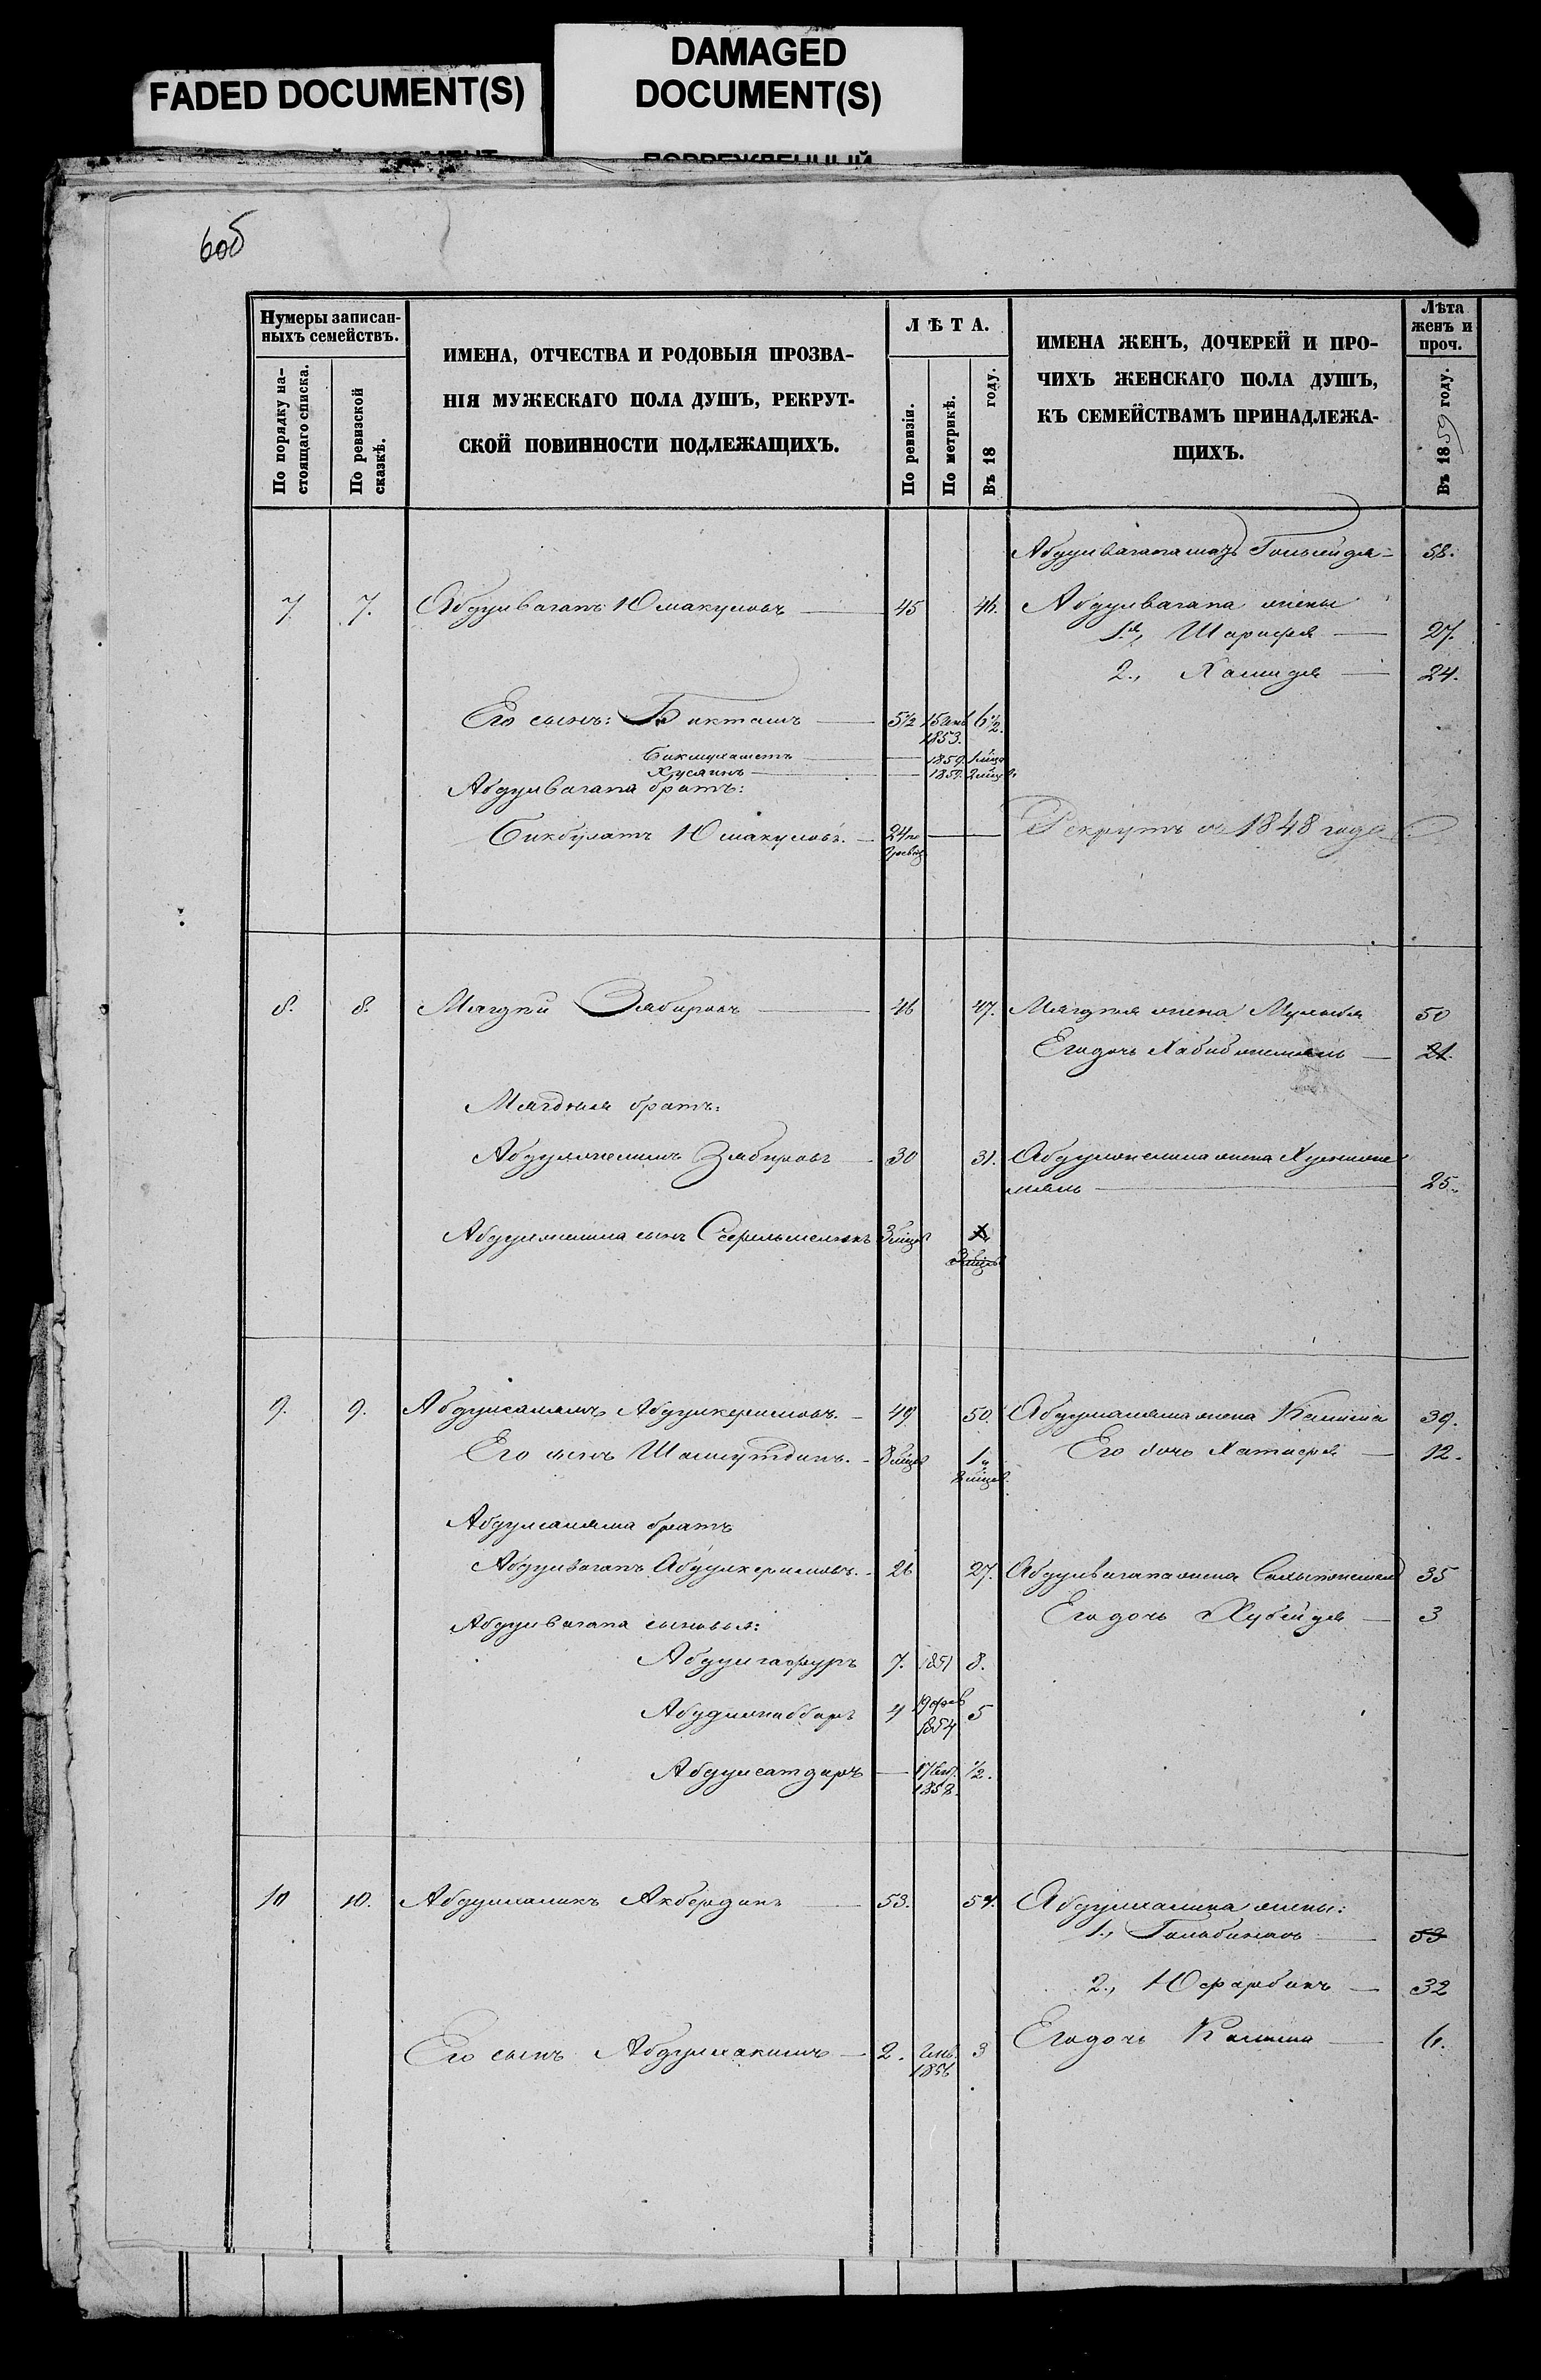 FADED DOCUMENT(S)
DAMAGED
DOCUMENT(S)
6об
Нумеры записан-
ныхъ семействъ.
По порядку на-
стоящаго списка.
По ревизской
сказкѣ.
ИМЕНА, ОТЧЕСТВА И РОДОВЫЯ ПРОЗВА-
НІЯ МУЖЕСКАГО ПОЛА ДУШЪ, РЕКРУТ-
СКОЙ ПОВИННОСТИ ПОДЛЕЖАЩИХЪ.
ЛѢТА.
По ревизіи.
По метрикѣ.
Въ 18 году.
ИМЕНА ЖЕНЪ, ДОЧЕРЕЙ И ПРО-
ЧИХЪ ЖЕНСКАГО ПОЛА ДУШЪ,
КЪ СЕМЕЙСТВАМЪ ПРИНАДЛЕЖА-
ЩИХЪ.
Лѣта
женъ и
проч.
Въ 1859 году.
Абдулвагапа мать 58.
7. 7. Абдулвагапъ Юмакуловъ 45 46. Абдулвагапа жены
1.я, Шарифа 27.
2., Хамидя 24.
Его сынъ: Бикташъ 5½ 15 1853. 6½.
Бикмухаметъ 1859.
Хусяинъ 1859.
Абдулвагапа братъ:
Бикбулатъ Юмакуловъ. 24 Рекрутъ въ 1848 годѣ
8. 8. Мягдій Зябировъ 46 47. Мягдія жена 50
Его дочь Хабибжемаль 21.
Мягдія братъ:
Абдулжелилъ Зябировъ 30 31. Абдулжелила жена
25.
Абдулжелила сынъ
9. 9. Абдулсалямъ Абдулкеримовъ. 49 50. Абдулсаляма жена 39.
Его сынъ Шамсутдинъ. Его дочь 12.
Абдулсаляма братъ
Абдулвагапъ Абдулкеримовъ. 26 27. Абдулвагапа жена 35
Абдулвагапа сыновья: Его дочь Хубейдя 3
Абдулгафуръ 7. 1851 8.
Абдулжаббаръ 4 19 фев 1854 5
Абдулсатдаръ 1858. ½.
10 10. Абдулхаликъ Акбердинъ 53. 54. Абдулхалика жены:
1., 53
2., Юфарбикъ 32
Его сынъ Абдулхакимъ 2. 1856 3 Его дочь 6.